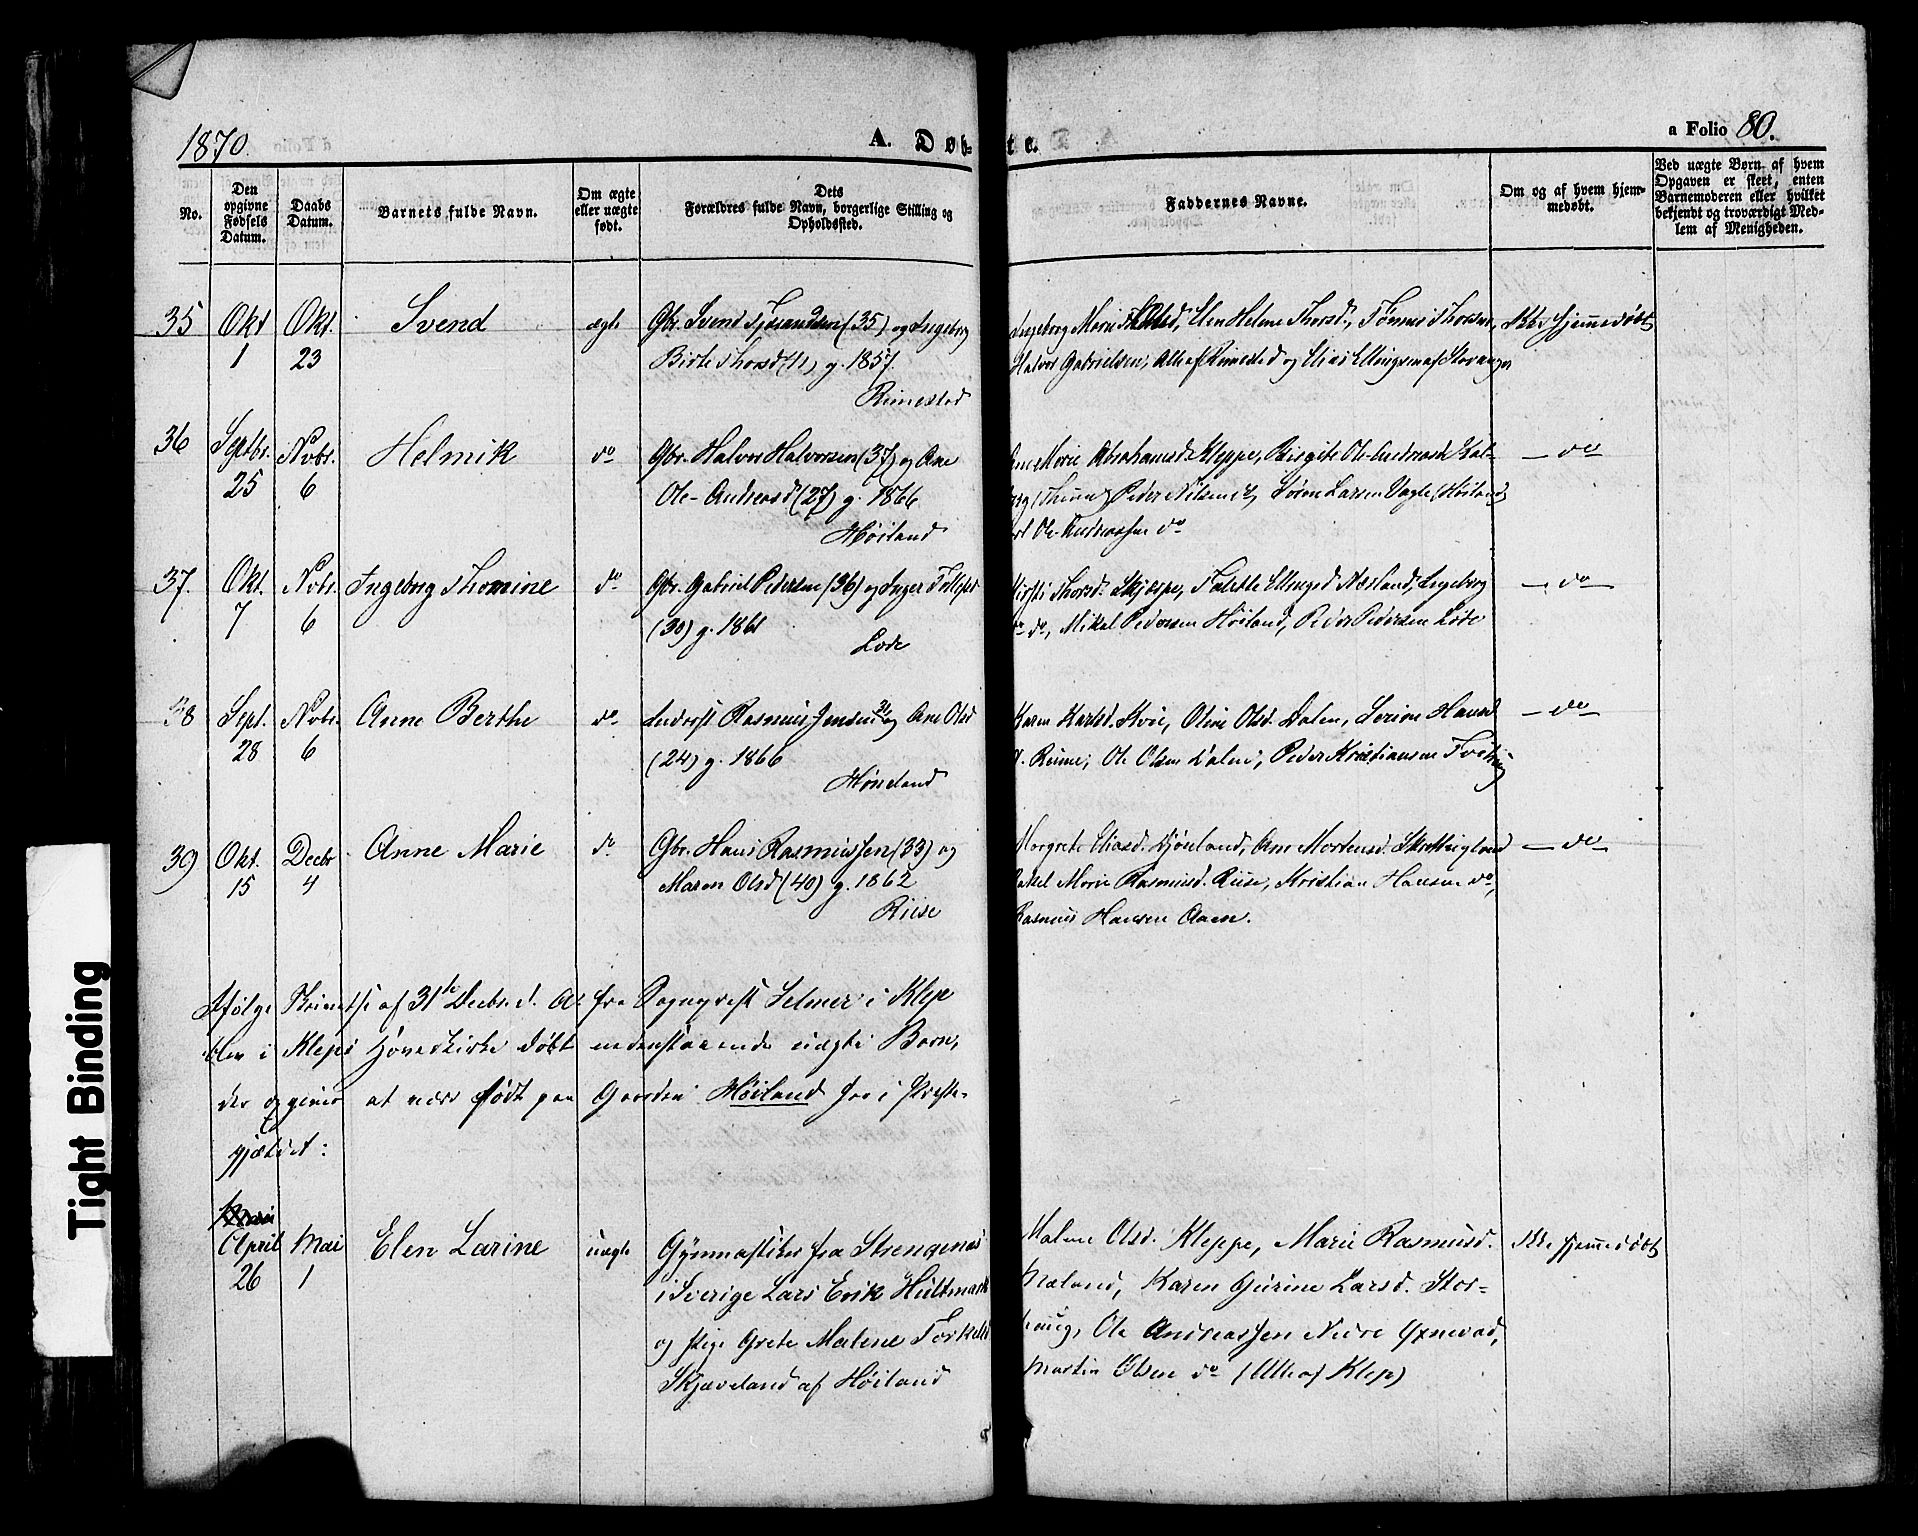 1870.
A. Døb-
te.
a Folio 80.
No.
Den opgivne Fødsels Datum.
Daabs Datum.
Barnets fulde Navn.
Om ægte eller uægte født.
Dets Forældres fulde Navn, borgerlige Stilling og Opholdssted.
Faddernes Navne.
Om og af hvem hjemmedøbt.
Ved uægte Børn, af hvem Opgaven er skeet, enten Barnemoderen eller hvilket bekjendt og troværdigt Medlem af Menigheden.
35 Okt 1 Okt. 23 Svend ægte
Gbr. Svend (35) og Ingeborg
Birte Thorsd (41) g. 1857.
Rimestad
Ingeborg Marie Elen Helene Thorsd., Tønnes Thorsen,
Halvor Gabrielsen, Alle af Rimestad og Elias Ellingsen af Stavanger
Ikke hjemmedøbt
36 Septbr. 25 Novbr. 6 Helmik do
Gbr. Halvor Halvorsen (37) og Ane
Ole-Andreasd (27) g. 1866
Høiland
Ane Marie Abrahamsd. Kleppe, Birgite Ole-Andreasd
Peder Nilsen Søren Larsen Vagle (Høiland)
Ole-Andreassen do
– do
37. Okt. 7 Nobr. 6 Ingeborg Thomine do
Gbr. Gabriel Pedersen (36) og Inger
(30) g. 1861
Lode
Kirsti Thorsd. Skjeppe, Ellingsd Næsland, Ingeborg
do do, Mikal Pedersen Høiland, Peder Pedersen Lode
– do –
38 Sept. 28 Nobr. 6 Anne Berthe do
Inderst Rasmus Jensen og Ane Olsd
(24) g. 1866
Høneland
Karen Karlsd. Kvie, Oline Olsd. Dalen, Serine Hansd
Rime, Ole Olsen Dalen, Peder Kristiansen
– do –
39 Okt. 15 Decbr 4 Anne Marie do
Gbr. Hans Rasmussen (33) og
Maren Olsd (40) g. 1862
Riise
Margrete Eliasd. Hjøneland, Ane Mortensd.
Rakel Marie Rasmusd. Riise, Kristian Hansen do,
Rasmus Hansen Aaen.
– do –
Ifølge Skrivelse af 31te Decbr. d. A. fra Sognepræst Selmer i Klep
blev i Kleps Hovedkirke døbt nedenstaaende uægte Barn,
der opgives at være født paa Gaarden Høiland her i Præste-
gjældet:
April 26 Mai 1 Elen Larine uægte
Gymnastiker fra Strengenæs
i Sverige Lars Erik Hultmark
og Pige Grete Malene Torkelsd
Skjæveland af Høiland
Malene Olsd. Kleppe, Marie Rasmusd.
Næland, Karen Gurine Larsd. Stor-
haug, Ole Andreassen Nedre Øxnevad,
Martin Olsen do (Alle af Klep)
Ikke hjemmedøbt
Tight Binding